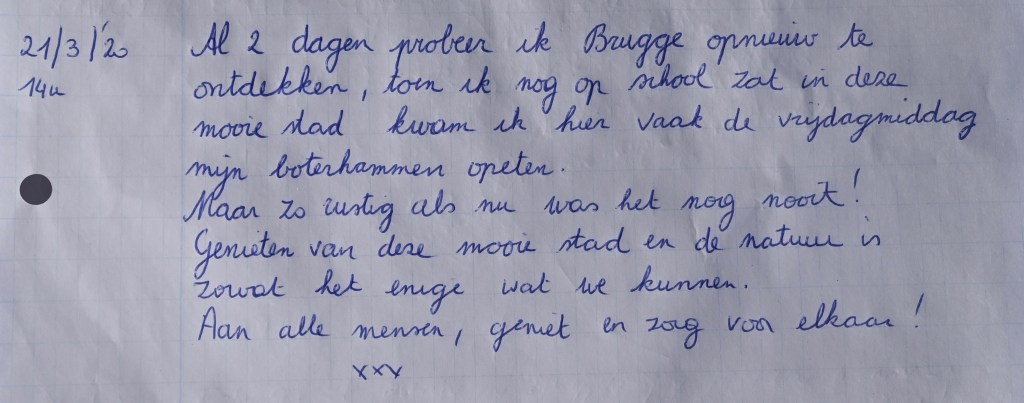 21/3/'20 Al 2 dagen probeer ik Brugge opnieuw te
14u ontdekken, toen ik nog op school zat in deze
mooie stad kwam ik hier vaak de vrijdagmiddag
mijn boterhammen opeten.
Maar zo rustig als nu was het nog nooit!
Genieten van deze mooie stad en de natuur is
zowat het enige wat we kunnen.
Aan alle mensen, geniet en zorg voor elkaar!
xxx